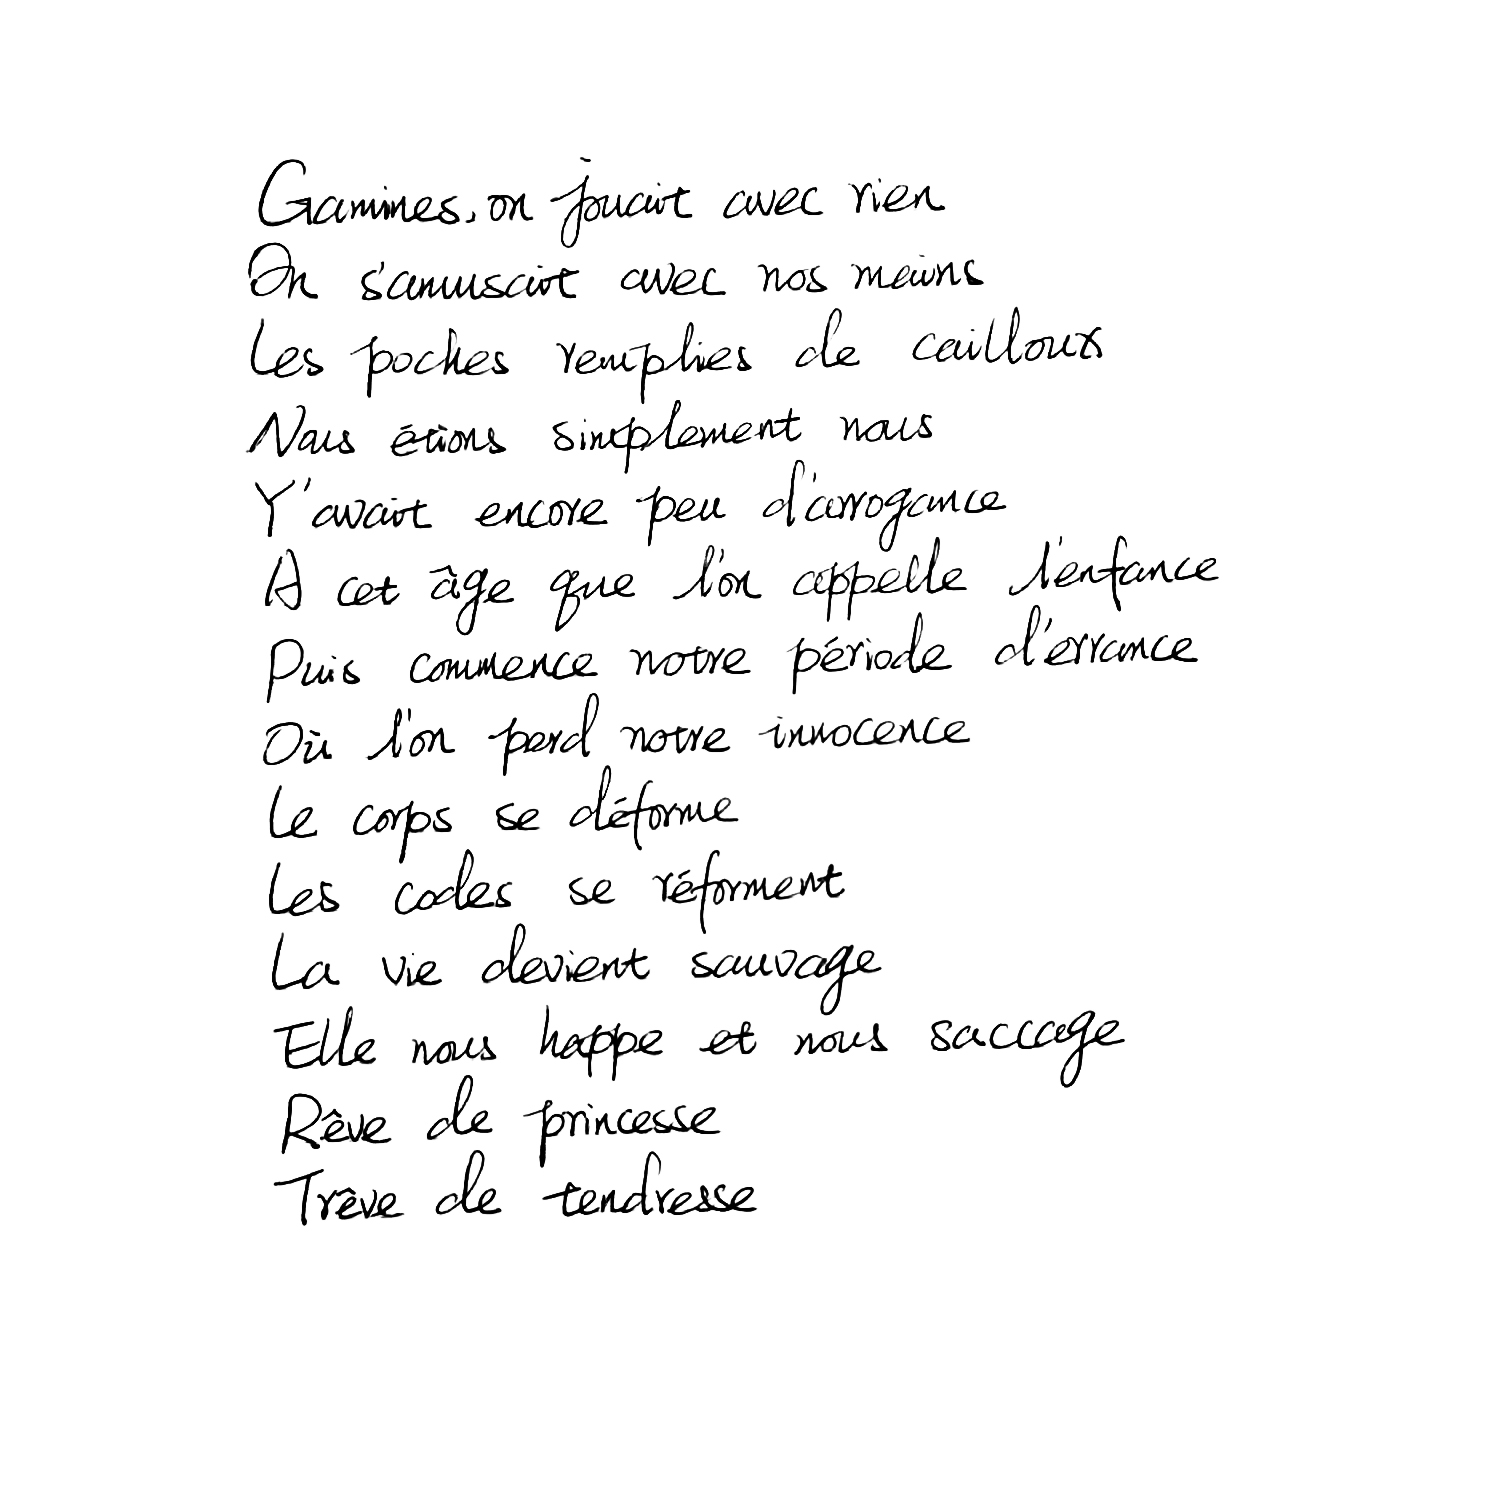 Gamines, on jouait avec rien
On s'amusait avec nos mains
Les poches remplies de cailloux
Nous étions simplement nous
Y'avait encore peu d'arrogance
A cet âge que l'on appelle l'enfance
Puis commence notre période d'errance
Où l'on perd notre innocence
Le corps se déforme
Les codes se réforment
La vie devient sauvage
Elle nous happe et nous saccage
Rêve de princesse
Trêve de tendresse